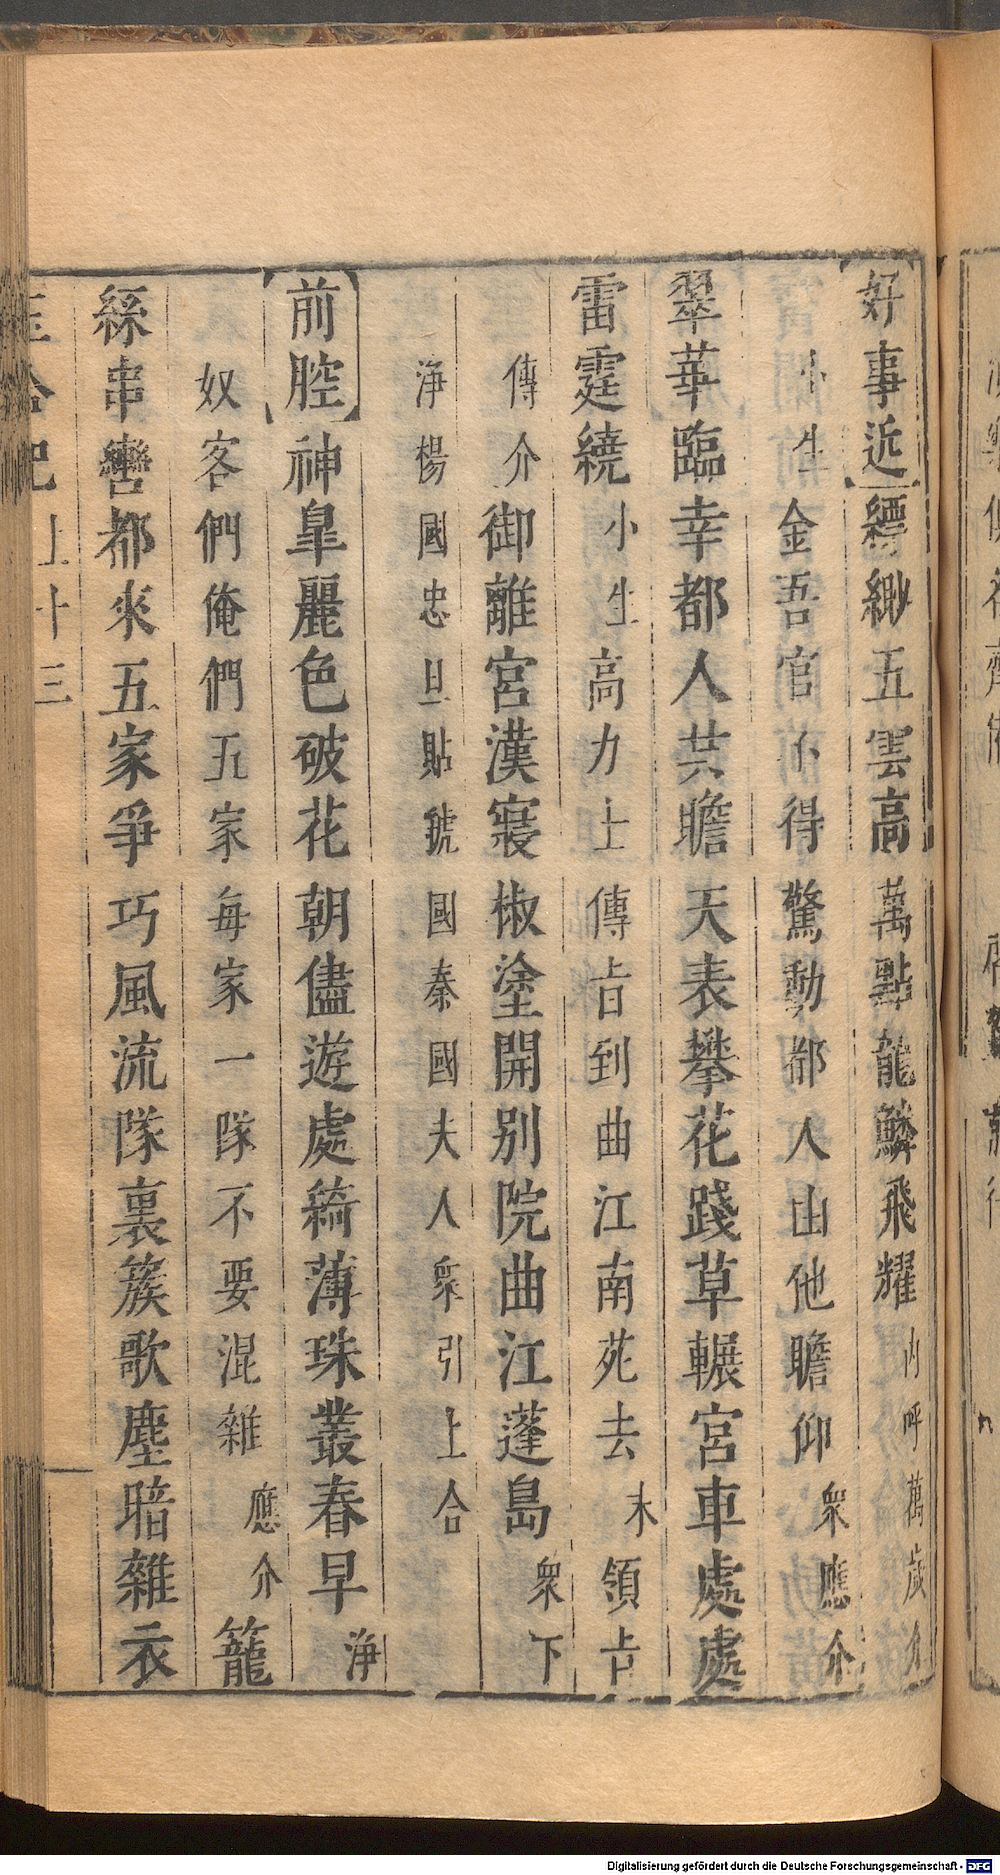 好事近縹緲五雲高萬點龍鱗飛耀內呼萬歲介
小生金吾官不得驚動都人由他瞻仰衆應介
翠華臨幸都人共瞻天表攀花踐草輾宮車處處
雷霆繞小生高力士傳旨到曲江南苑去末領旨
傳介御離宮漢寢椒塗開別院曲江蓬島衆下
淨楊國忠旦貼虢國秦國夫人衆引上合
前腔神皐麗色破花朝儘遊處綺薄珠叢春早淨
奴客們俺們五家每家一隊不要混雜應介籠
絲串轡都來五家爭巧風流隊裏簇歌塵暗雜衣
上 十三
Digitalisierung gefördert durch die Deutsche Forschungsgemeinschaft - DFG